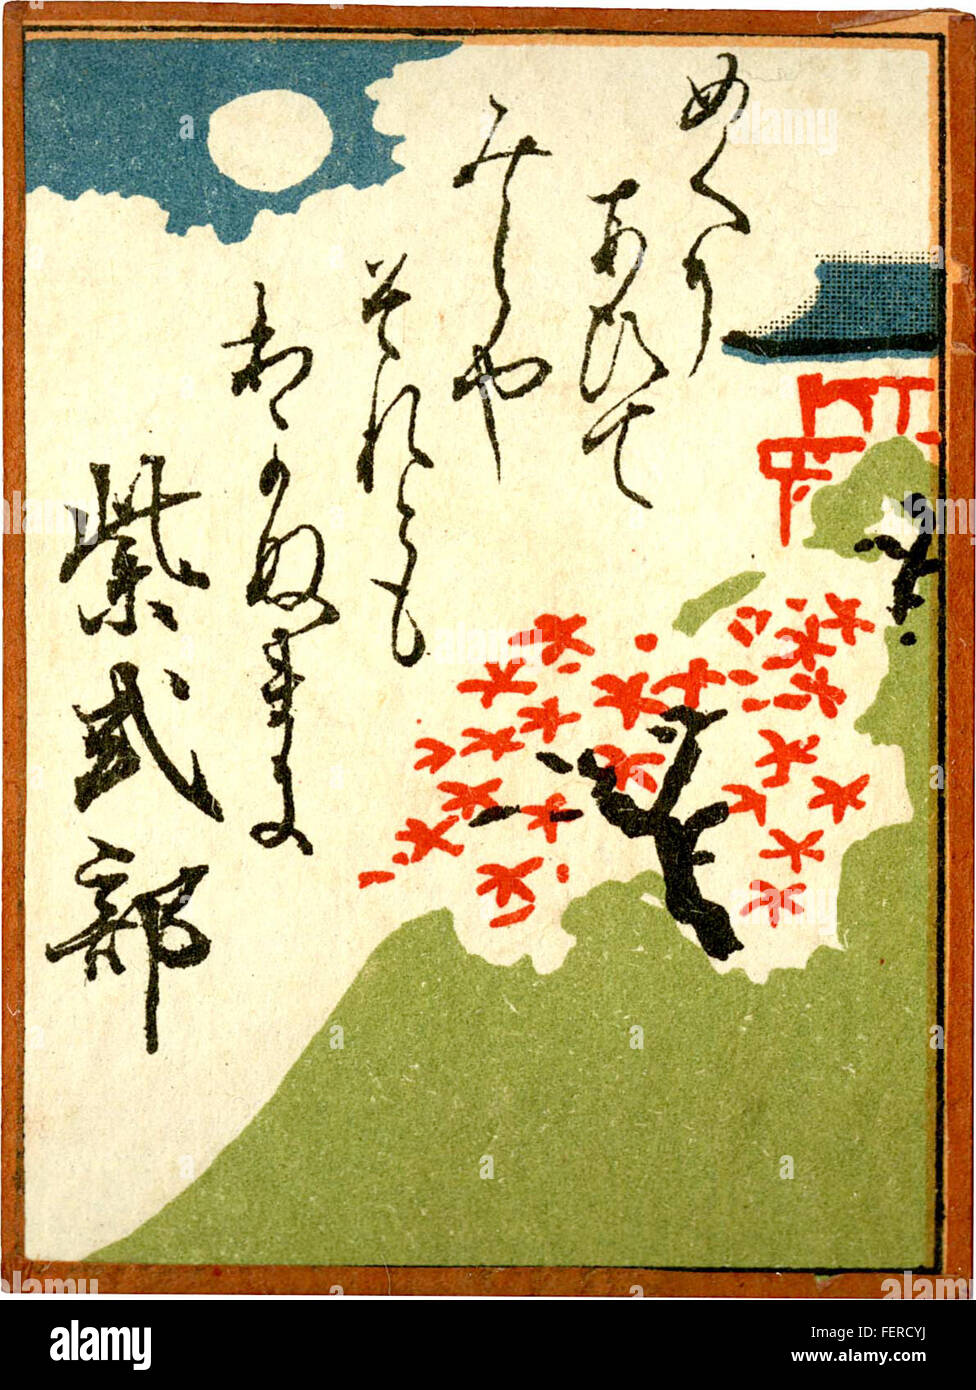 めくり
あひて
みしや
それとも
わかぬまに
紫式部
alamy
a
alamy
Image ID: FERCYJ
www.alamy.com